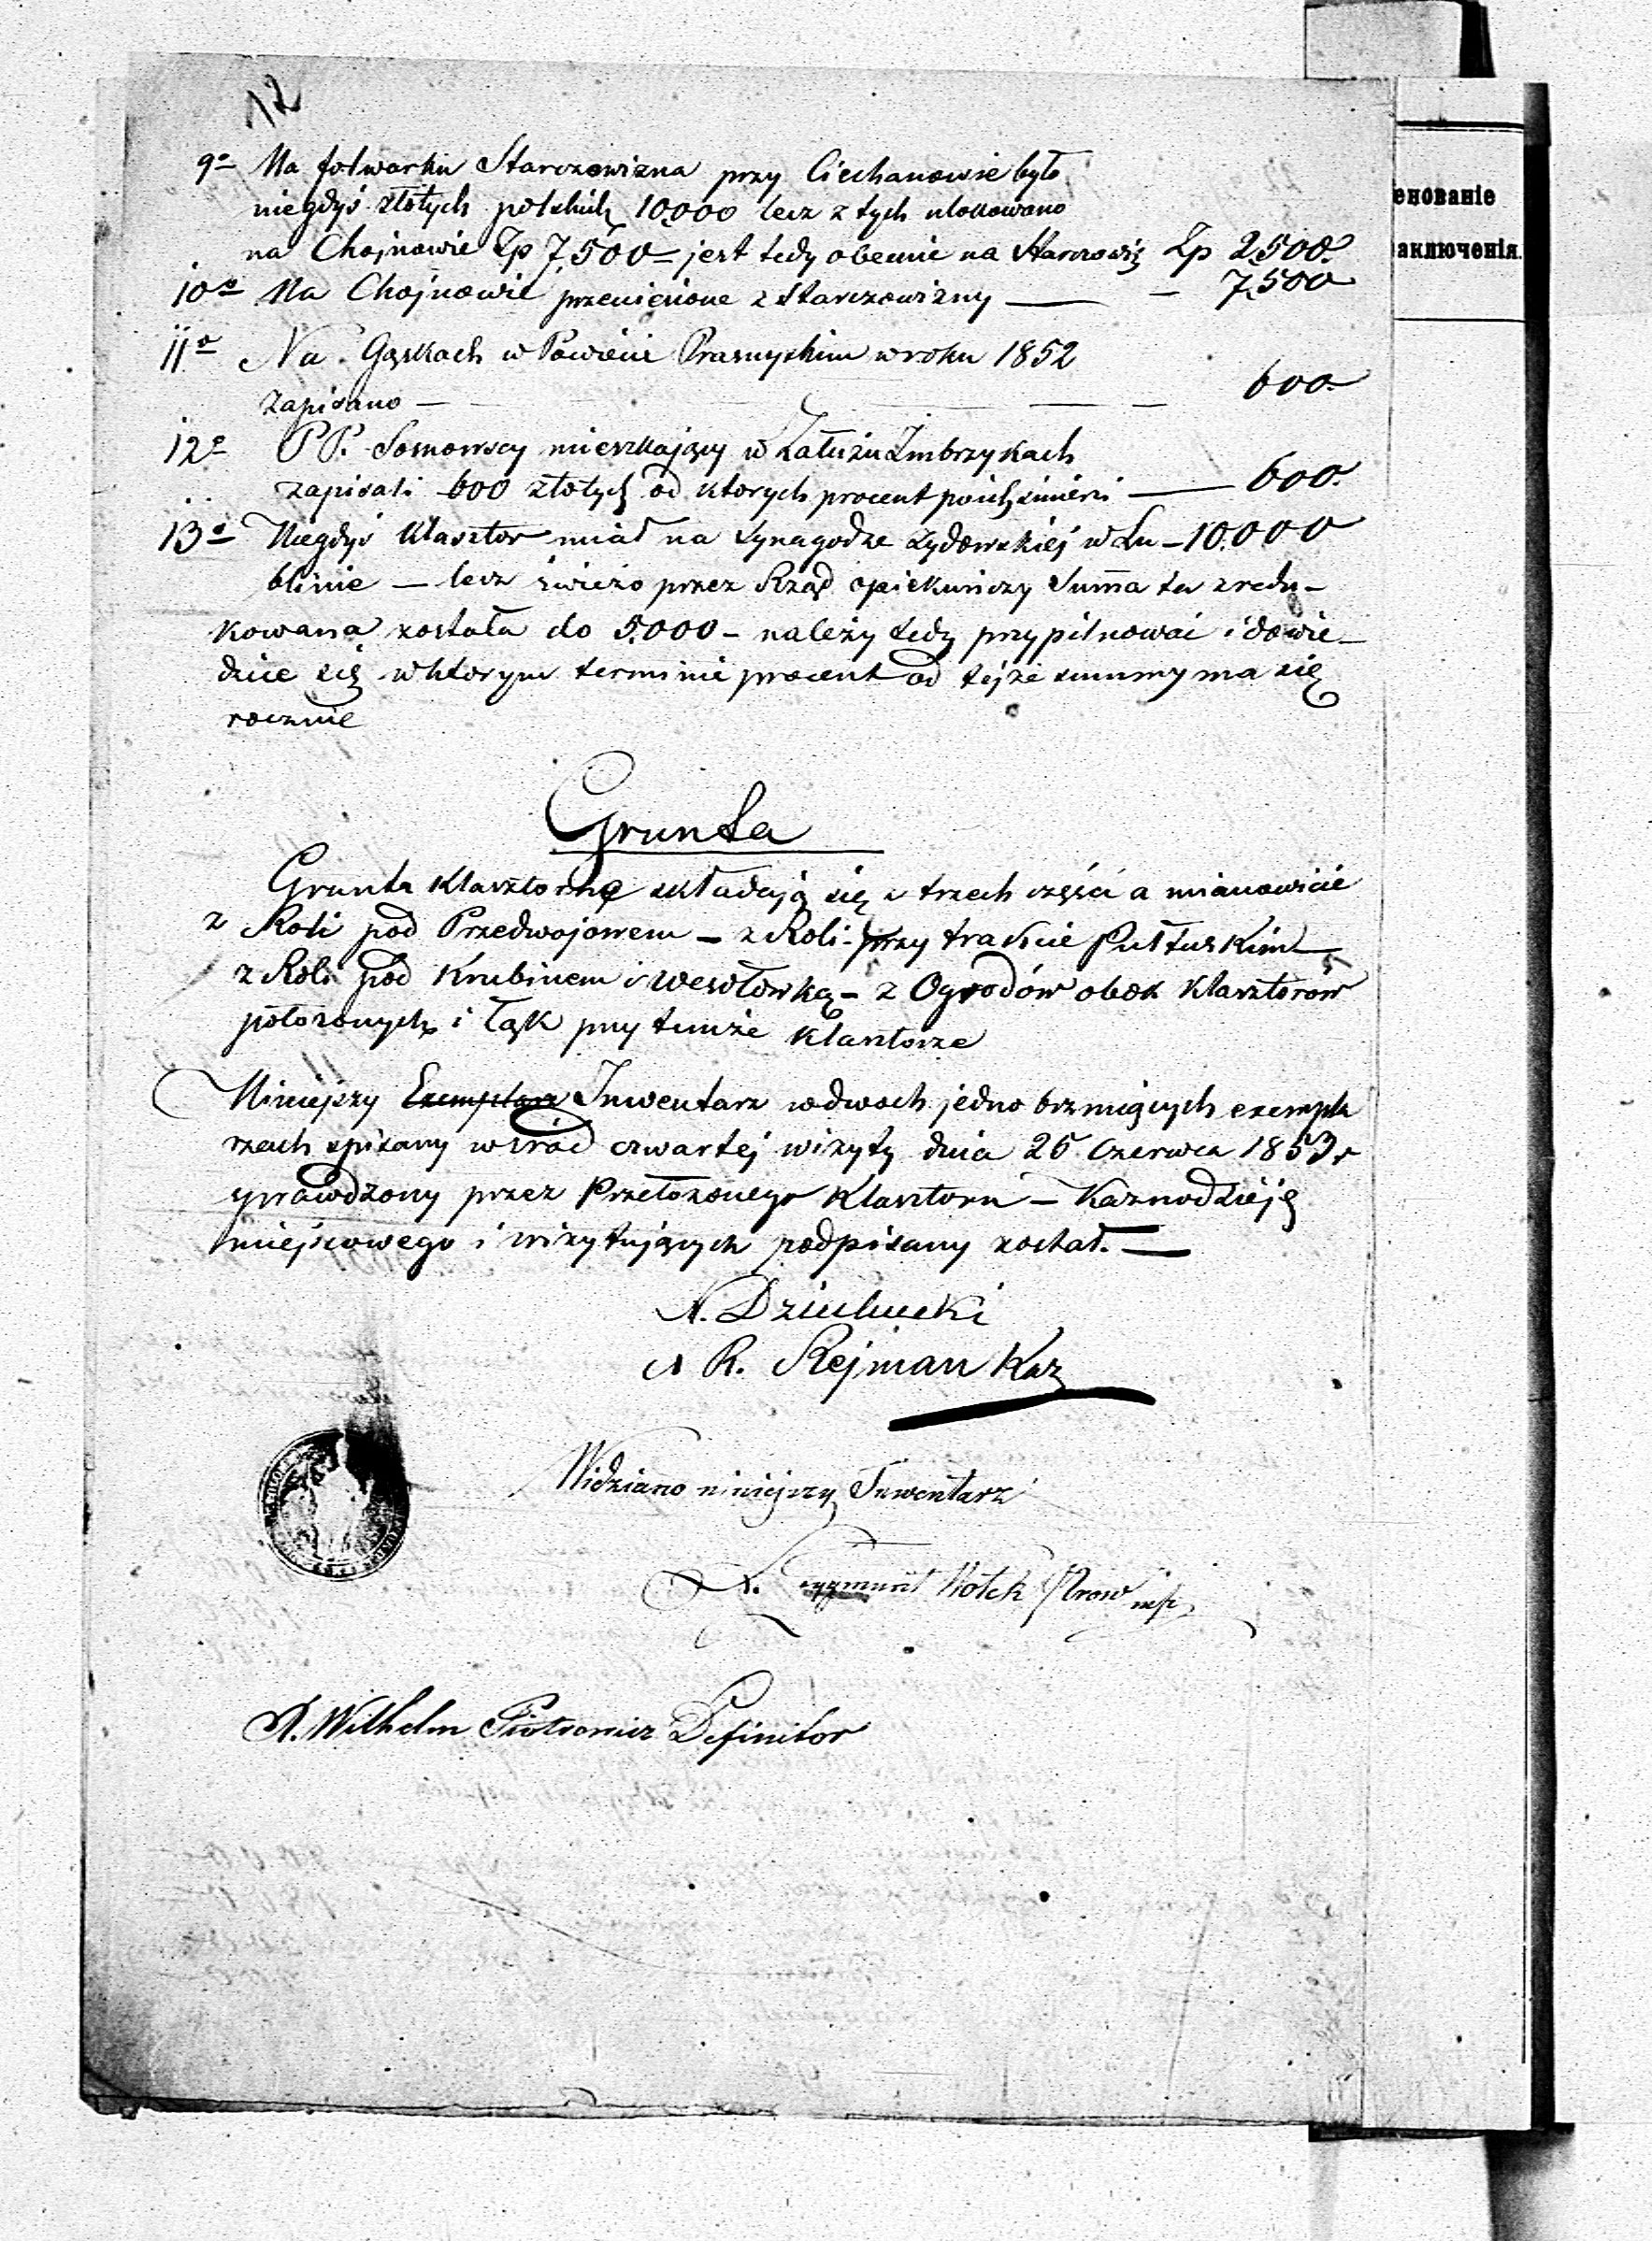 12
9o Na folwarku Starczewizna przy Ciechanowie było
niegdyś złotych polskich 10,000 lecz z tych ulokowano
na Chojnowie Zp 7,500 – jest tedy obecnie na Starczewiz Zp 2,500.
10o Na Chojnowie przeniesione z Starczewizny — – 7,500
11o Na Gąskach w Powiecie Prasnyskim w roku 1852
zapisano — — — 600.
12o PP. Sosnowscy mieszkający w Załużu Imbrzykach
zapisali 600 złotych od ktorych procent po ich śmierci — 600.
13o Niegdyś Klasztor miał na Synagodze Zydowskiéj w Lu – 10.000
blinie — lecz świeżo przez Rząd opiekuńczy Summa ta zredu–
kowana została do 5.000 – należy tedy przypilnować i dowie–
dziec się w ktorym terminie procent od téjże summy ma się
rocznie
Grunta
Grunta Klasztorne składają się z trzech części a mianowicie
z Roli pod Przedwojowem – z Roli przy trakcie Pułtuskim —
z Roli pod Krubinem i Wesołówką – z Ogrodów obok Klasztorów
położonych i Łąk przy temże Klasztorze
Niniejszy Exemplarz Inwentarz w dwoch jedno brzmiących exempla
rzach spisany wśród czwartéj wizyty dnia 25 Czerwca 1853 r
sprawdzony przez Przełożonego Klasztoru – Kaznodzieję
miejscowego i wizytujących podpisany został. —
X R. Rejman Kaz
Widziano niniejszy Inwentarz
X. Zygmunt Prow mp
X. Wilhelm Piotrowicz Definitor
енованіе
аключенія.